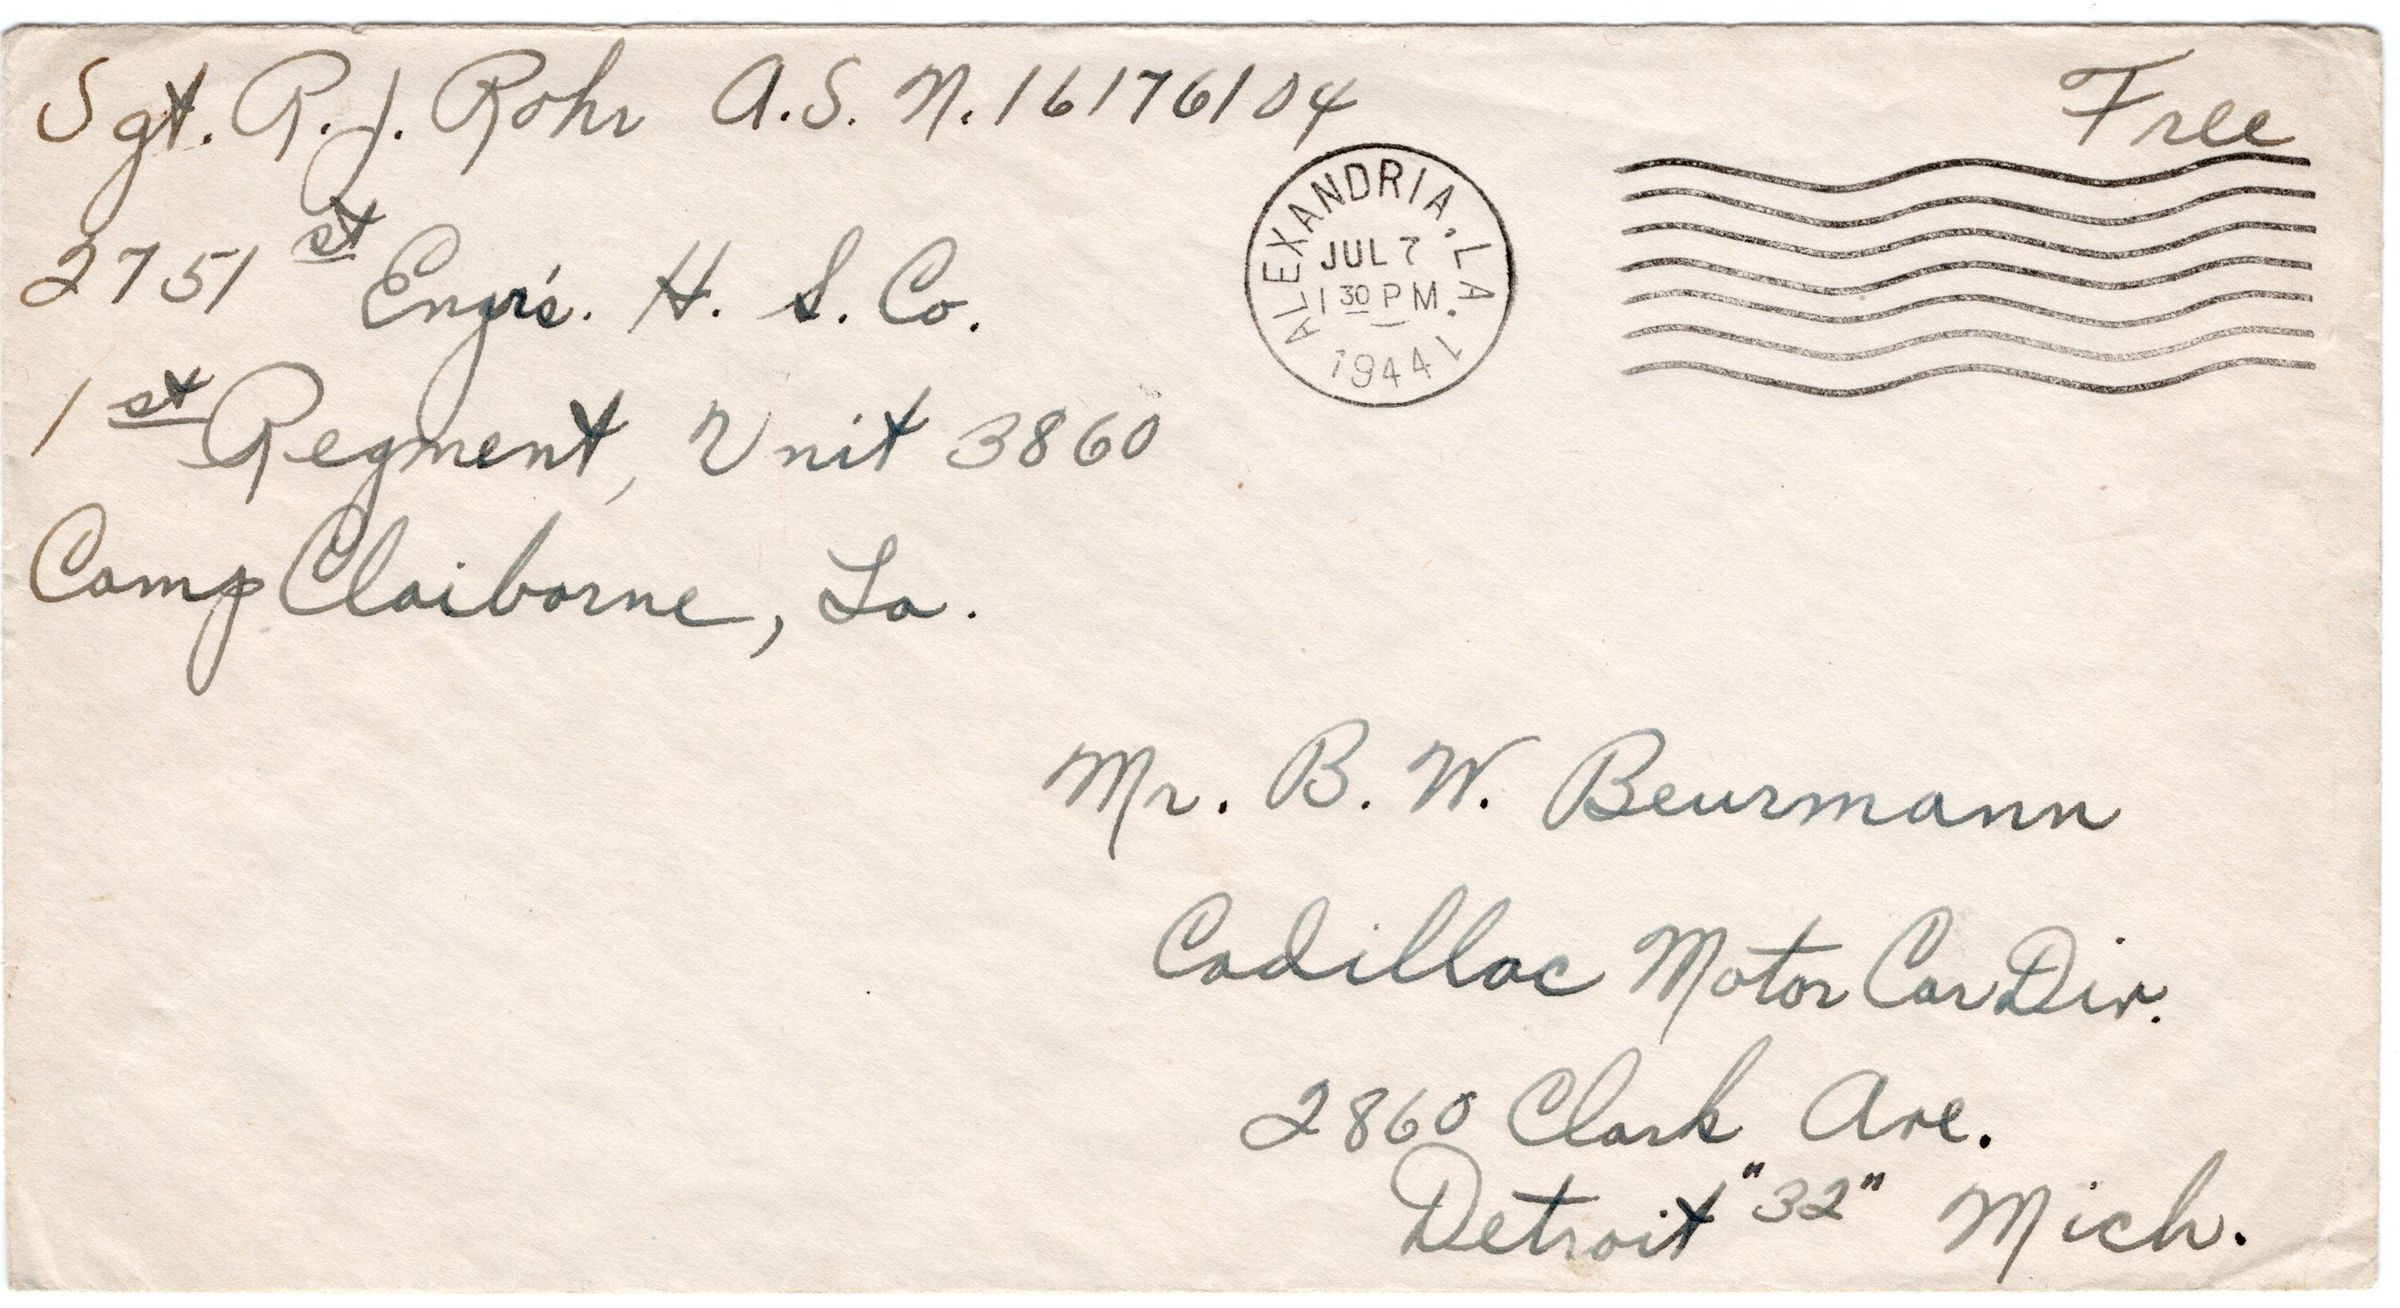 Sgt. R. J. Rohr A.S.N. 16176104
Free
2751st Engr's. H. S. Co.
1st Regment, Unit 3860
Camp Claiborne, La.
ALEXANDRIA, LA.
JUL 7
1 30 PM
1944
Mr. B. W. Beurmann
Cadillac Motor Car Div.
2860 Clark Ave.
Detroit "32" Mich.